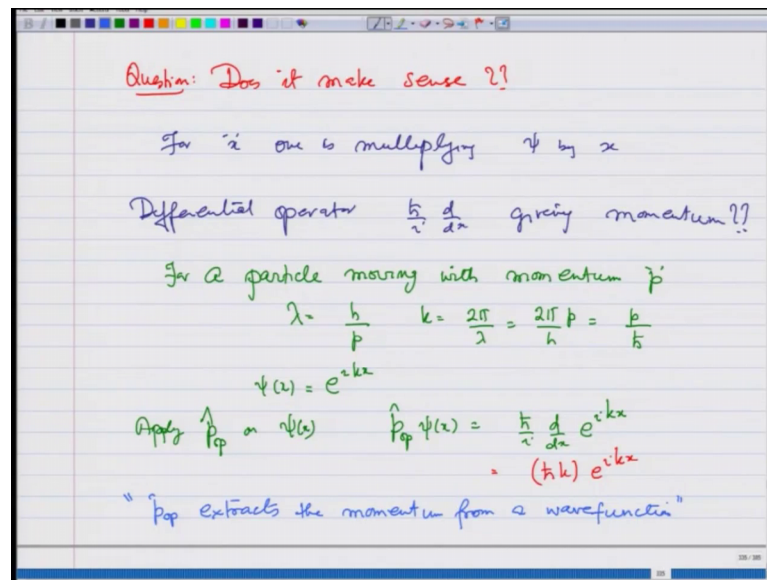 Question: Does it make sense ??
For 'x' one is multiplying ψ by x
Differential operator ħ/i d/dx giving momentum ??
For a particle moving with momentum 'p'
λ = h/p k = 2π/λ = 2π/h p = p/ħ
ψ(x) = e^{ikx}
Apply p̂_op on ψ(x) p̂_op ψ(x) = ħ/i d/dx e^{ikx}
= (ħk) e^{ikx}
"p̂_op extracts the momentum from a wavefunction"